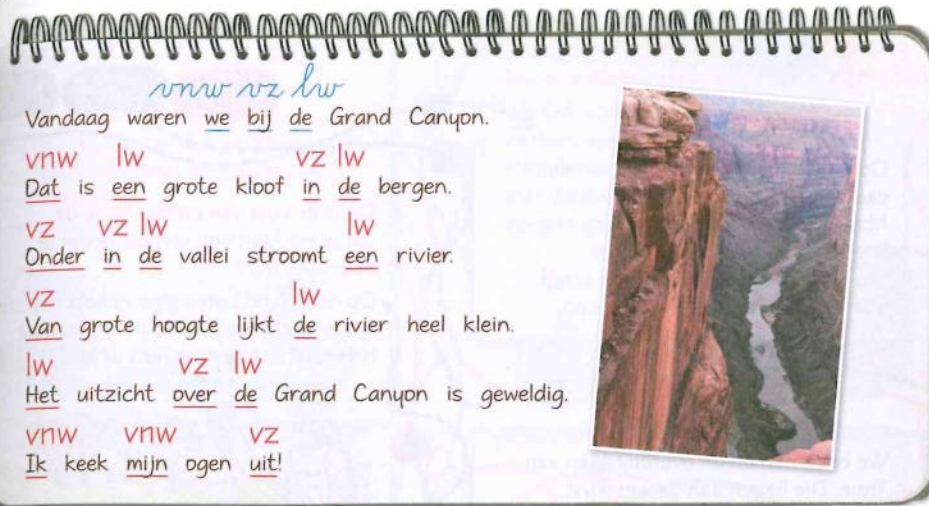 vnw vz lw
Vandaag waren we bij de Grand Canyon.
vnw lw vz lw
Dat is een grote kloof in de bergen.
vz vz lw lw
Onder in de vallei stroomt een rivier.
vz lw
Van grote hoogte lijkt de rivier heel klein.
lw vz lw
Het uitzicht over de Grand Canyon is geweldig.
vnw vnw vz
Ik keek mijn ogen uit!